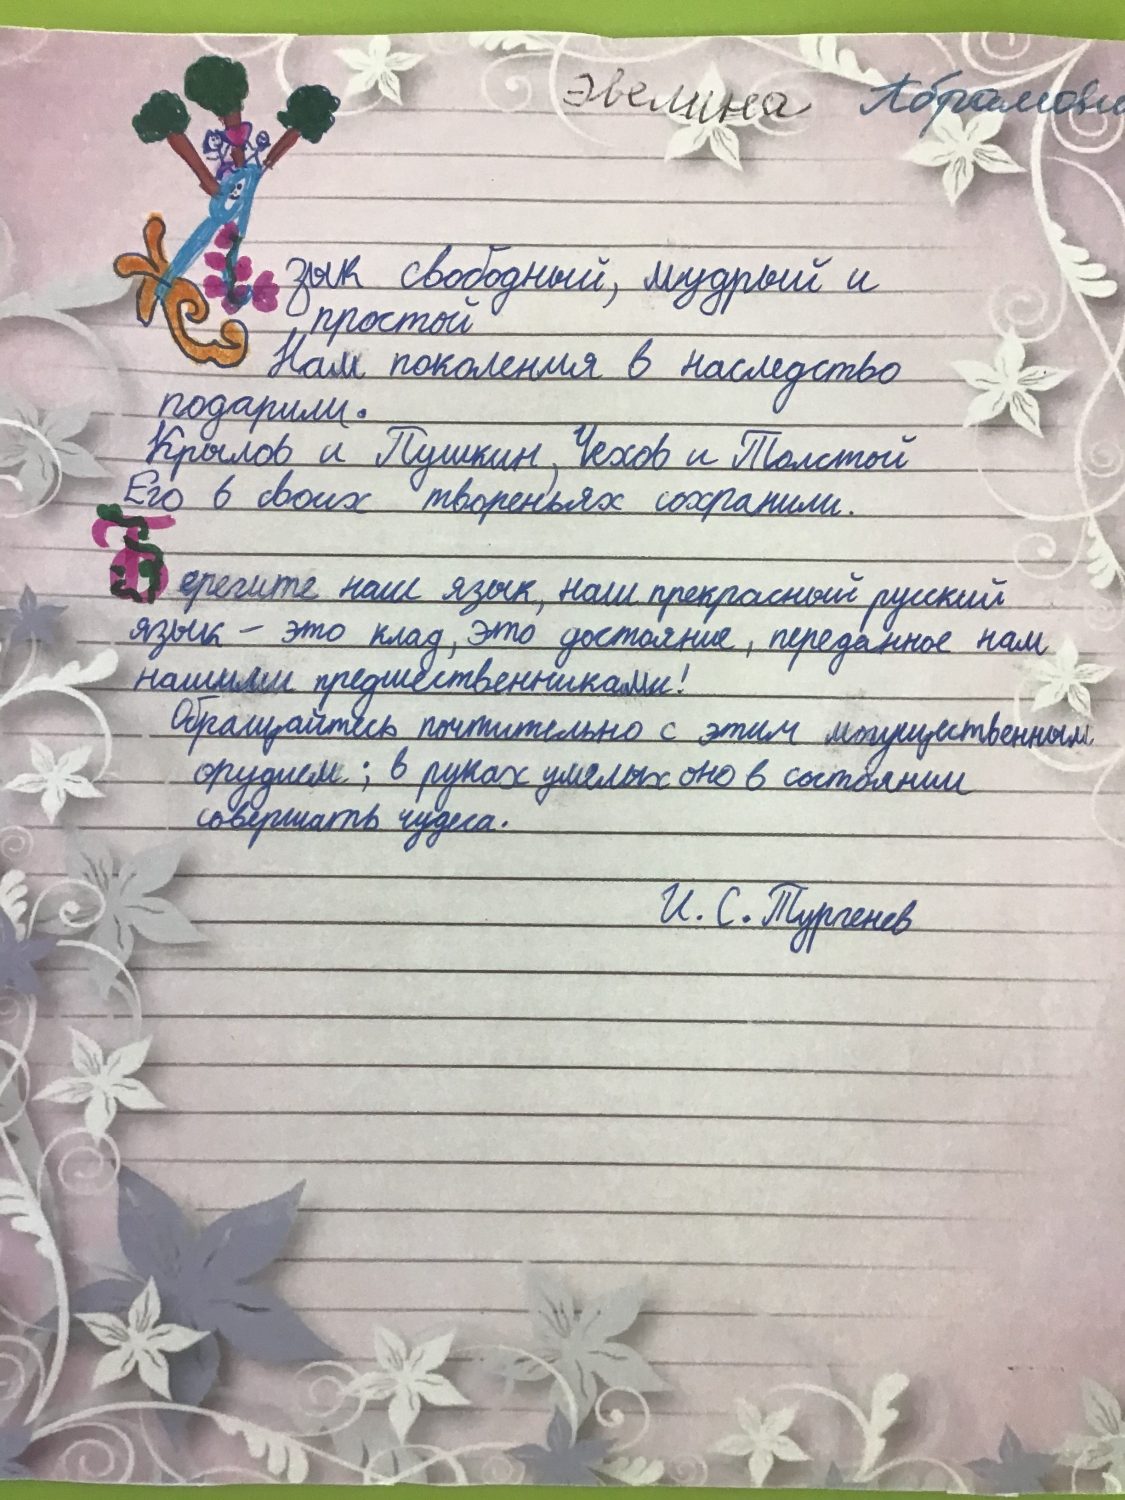 Эвелина
Язык свободный, мудрый и
простой
Нам поколения в наследство
подарили.
Крылов и Пушкин, Чехов и Толстой
Его в своих твореньях сохранили.
Берегите наш язык, наш прекрасный русский
язык – это клад, это достояние, переданное нам
нашими предшественниками!
Обращайтесь почтительно с этим могущественным
орудием; в руках умелых оно в состоянии
совершать чудеса.
И. С. Тургенев